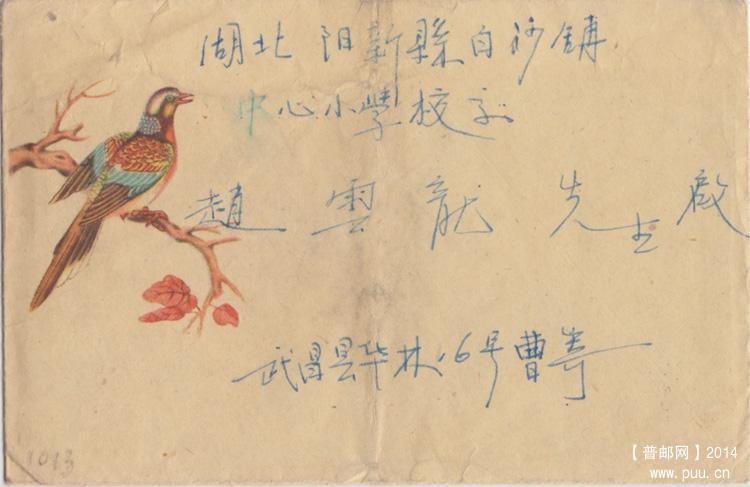 湖北 阳新縣白沙鎮
中心小學校交
趙雲龍 先生 啟
武昌县华林16号曹寄
1013
【普邮网】2014
www.puu.cn